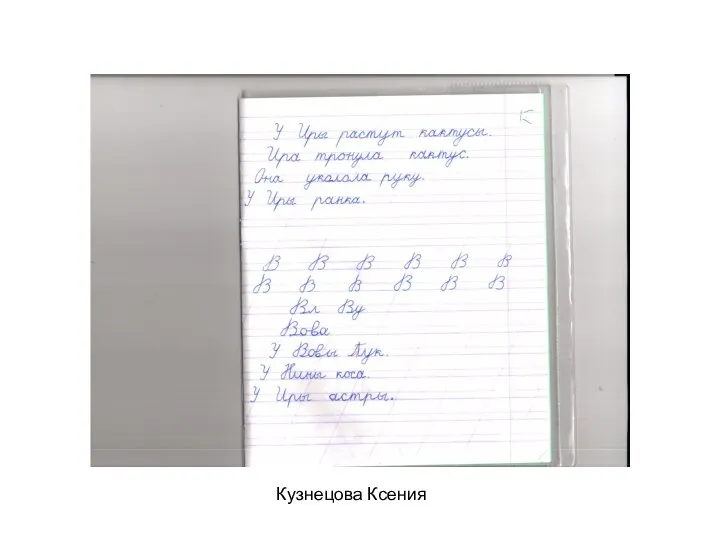 У Иры растут кактусы.
Ира тронула кактус.
Она уколола руку.
У Иры ранка.
В В В В В В
В В В В В В
Вл Ву
Вова
У Вовы лук.
У Нины коса.
У Иры астры.
Кузнецова Ксения